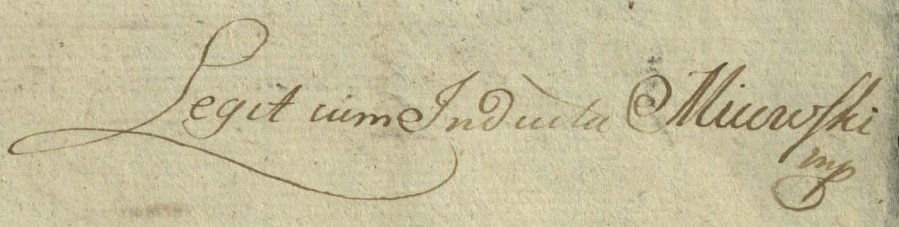 Legit cum Inducta Micowski
mp